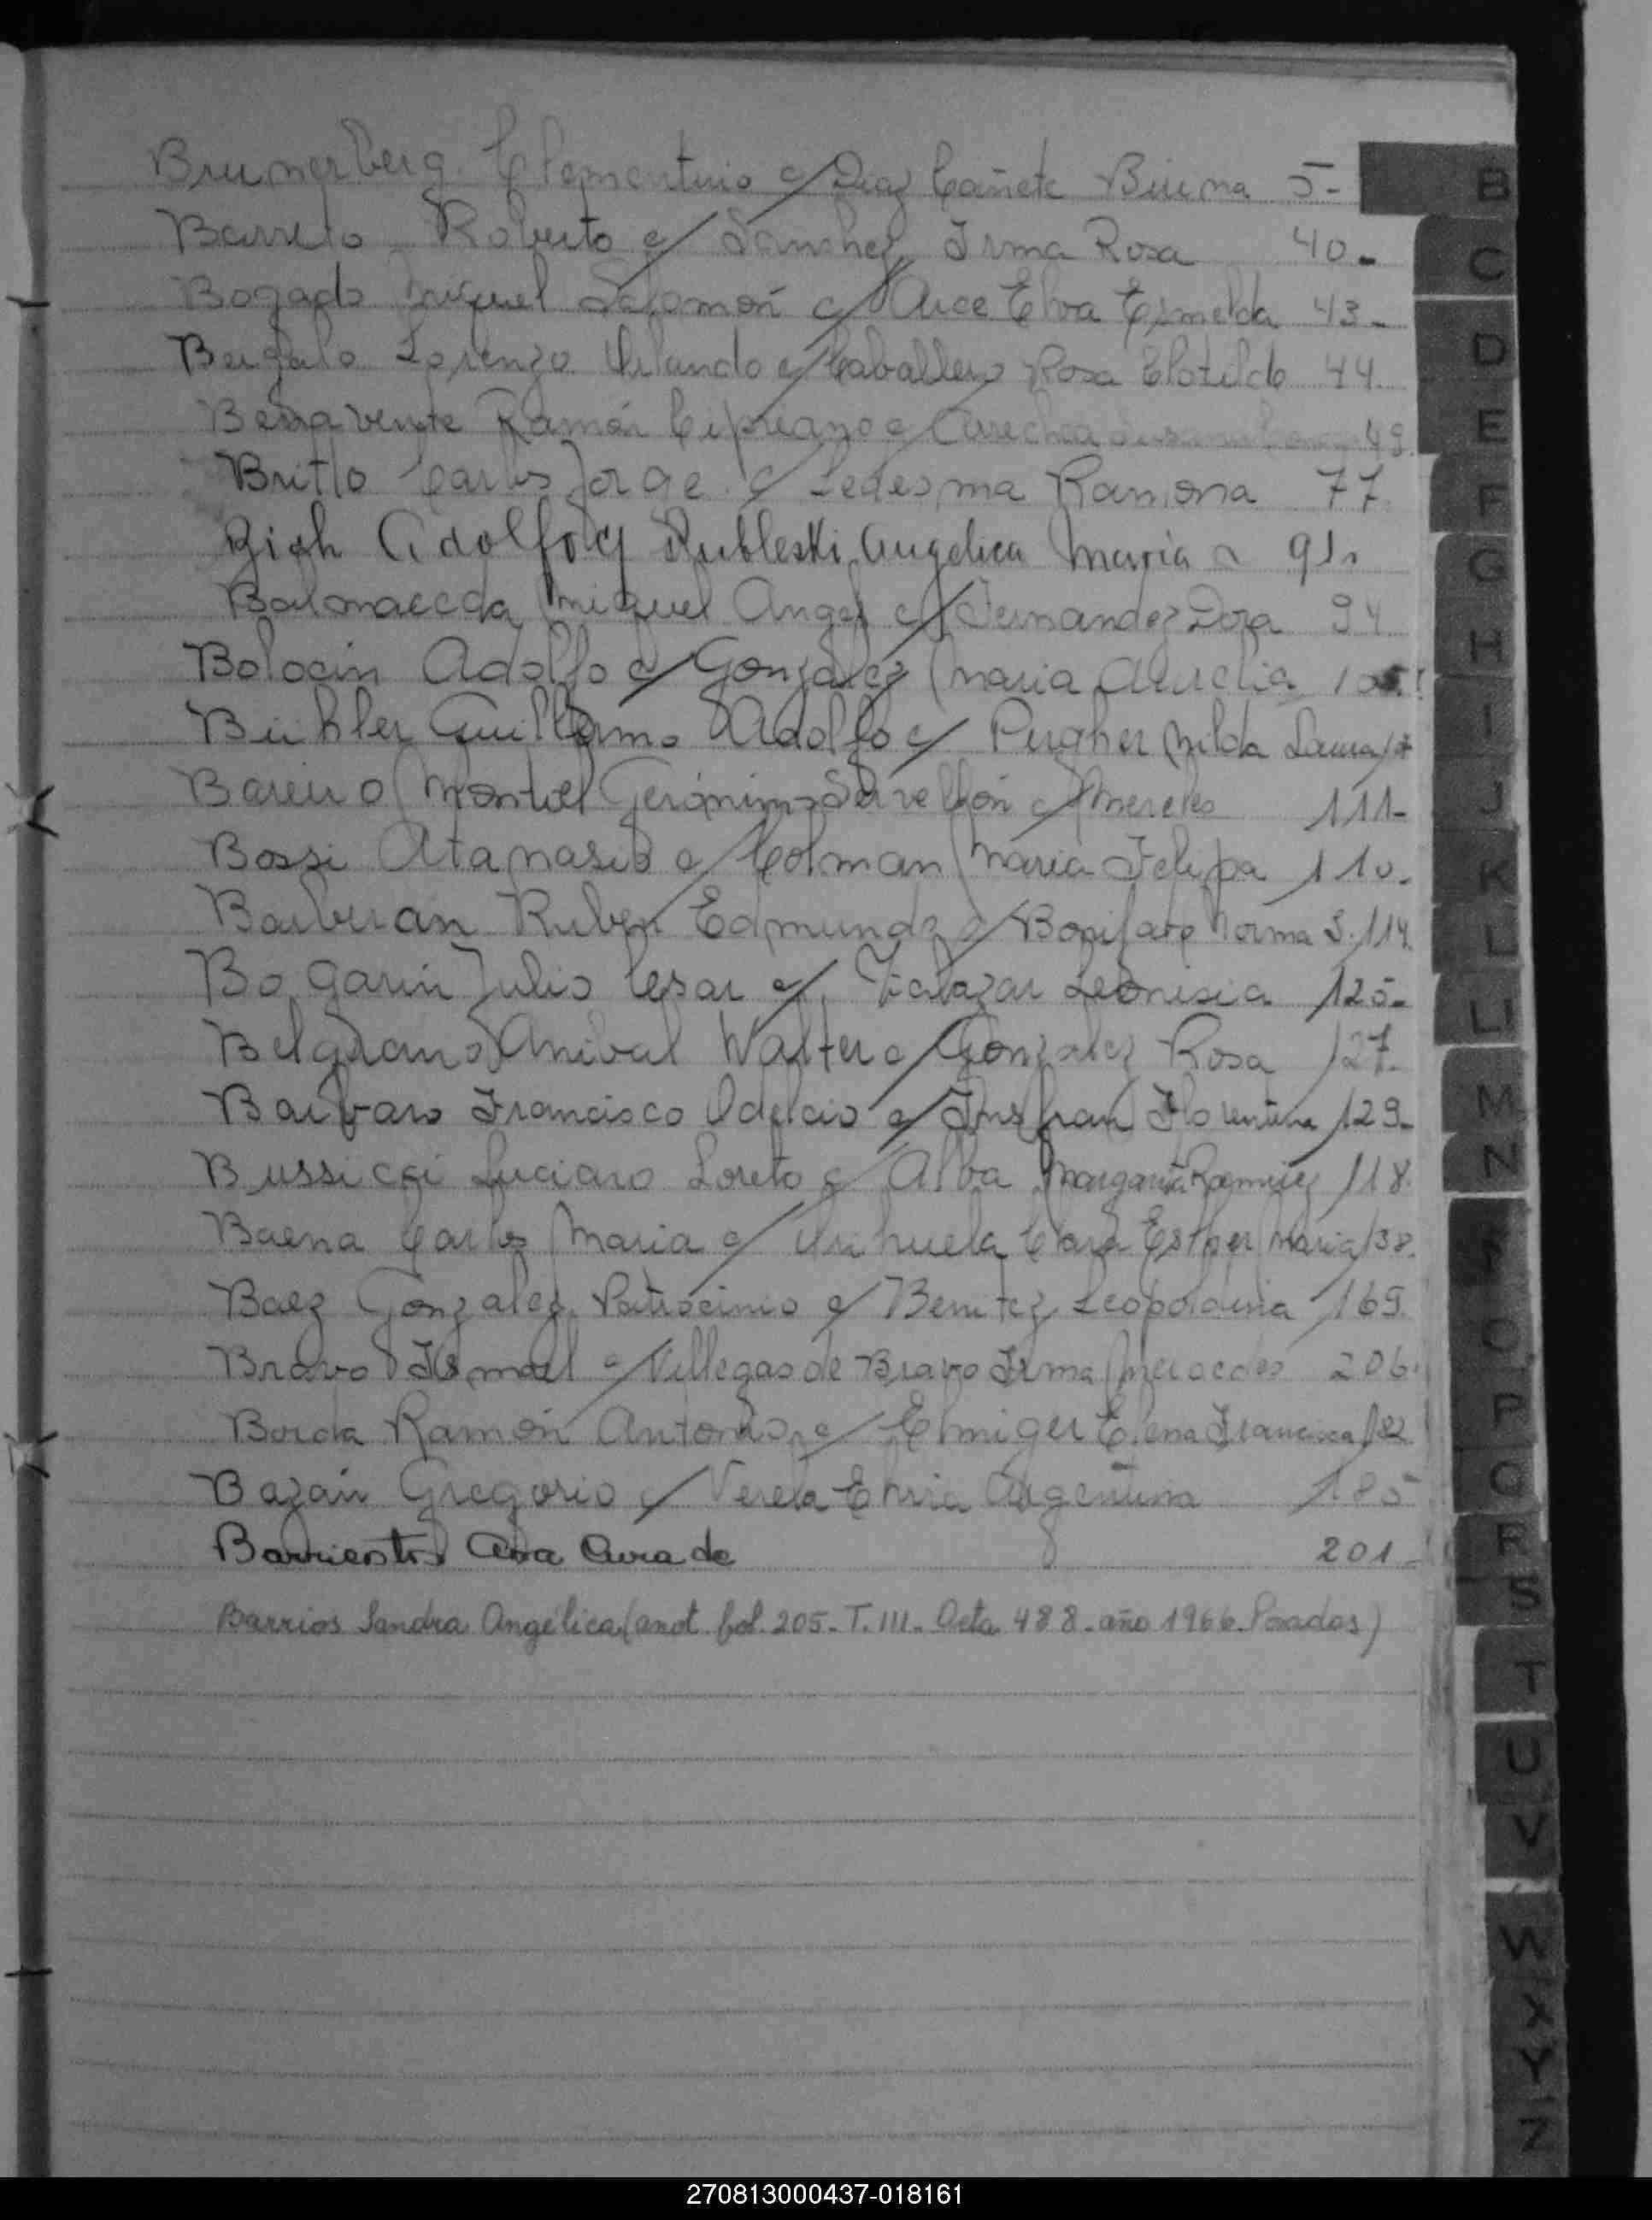 Brunerberg Clementino c/ Diaz Cañete Birma 5-
Barreto Roberto c/ Sanchez Irma Rosa 40-
Bogado Miguel Salomón c/ Arce Elva Esmelda 43-
Lorenzo Orlando c/ Caballero Rosa Clotilde 44
Benavente Ramón Cipriano c/ Arrechea 49.
Britto Carlos Jorge c/ Ledesma Ramona 77.
Adolfo c/ Rubleski Angelica Maria 91
Balmaceda Miguel Angel c/ Fernandez Dora 94
Bolocin Adolfo c/ González Maria Aurelia
Bühler Guillermo Adolfo c/ Nilda Laura
Bareiro Montiel Gerónimo c/ Mereles 111-
Bossi Atanasio c/ Colman Maria Felipa 110-
Barberan Ruben Edmundo c/ Bonifato Norma S. 114.
Bogarin Julio Cesar c/ Zalazar Leonisia 125-
Belgrano Anibal Walter c/ Gonzalez Rosa 127-
Barbaro Francisco Odelcio c/ Insfran Florentina 129-
Bussi Luciano Loreto c/ Alba Margarita Ramirez 118.
Baena Carlos Maria c/ Orihuela Clara Esther Maria 138.
Baez Gonzalez Patrocinio c/ Benitez Leopoldina 169.
Bravo Ismael c/ Villegas de Bravo Irma Mercedes 206.
Borda Ramón Antonio c/ Elmiger Elena Francisca 182
Bazán Gregorio c/ Argentina 185
Barrientos Ana Aura de 201-
Barrios Sandra Angélica (anot. fol. 205-T. III- Acta 488-año 1966-Posadas)
B
C
D
E
F
G
H
I
J
K
L
LL
M
N
Ñ
O
P
Q
R
S
T
U
V
W
X
Y
Z
270813000437-018161